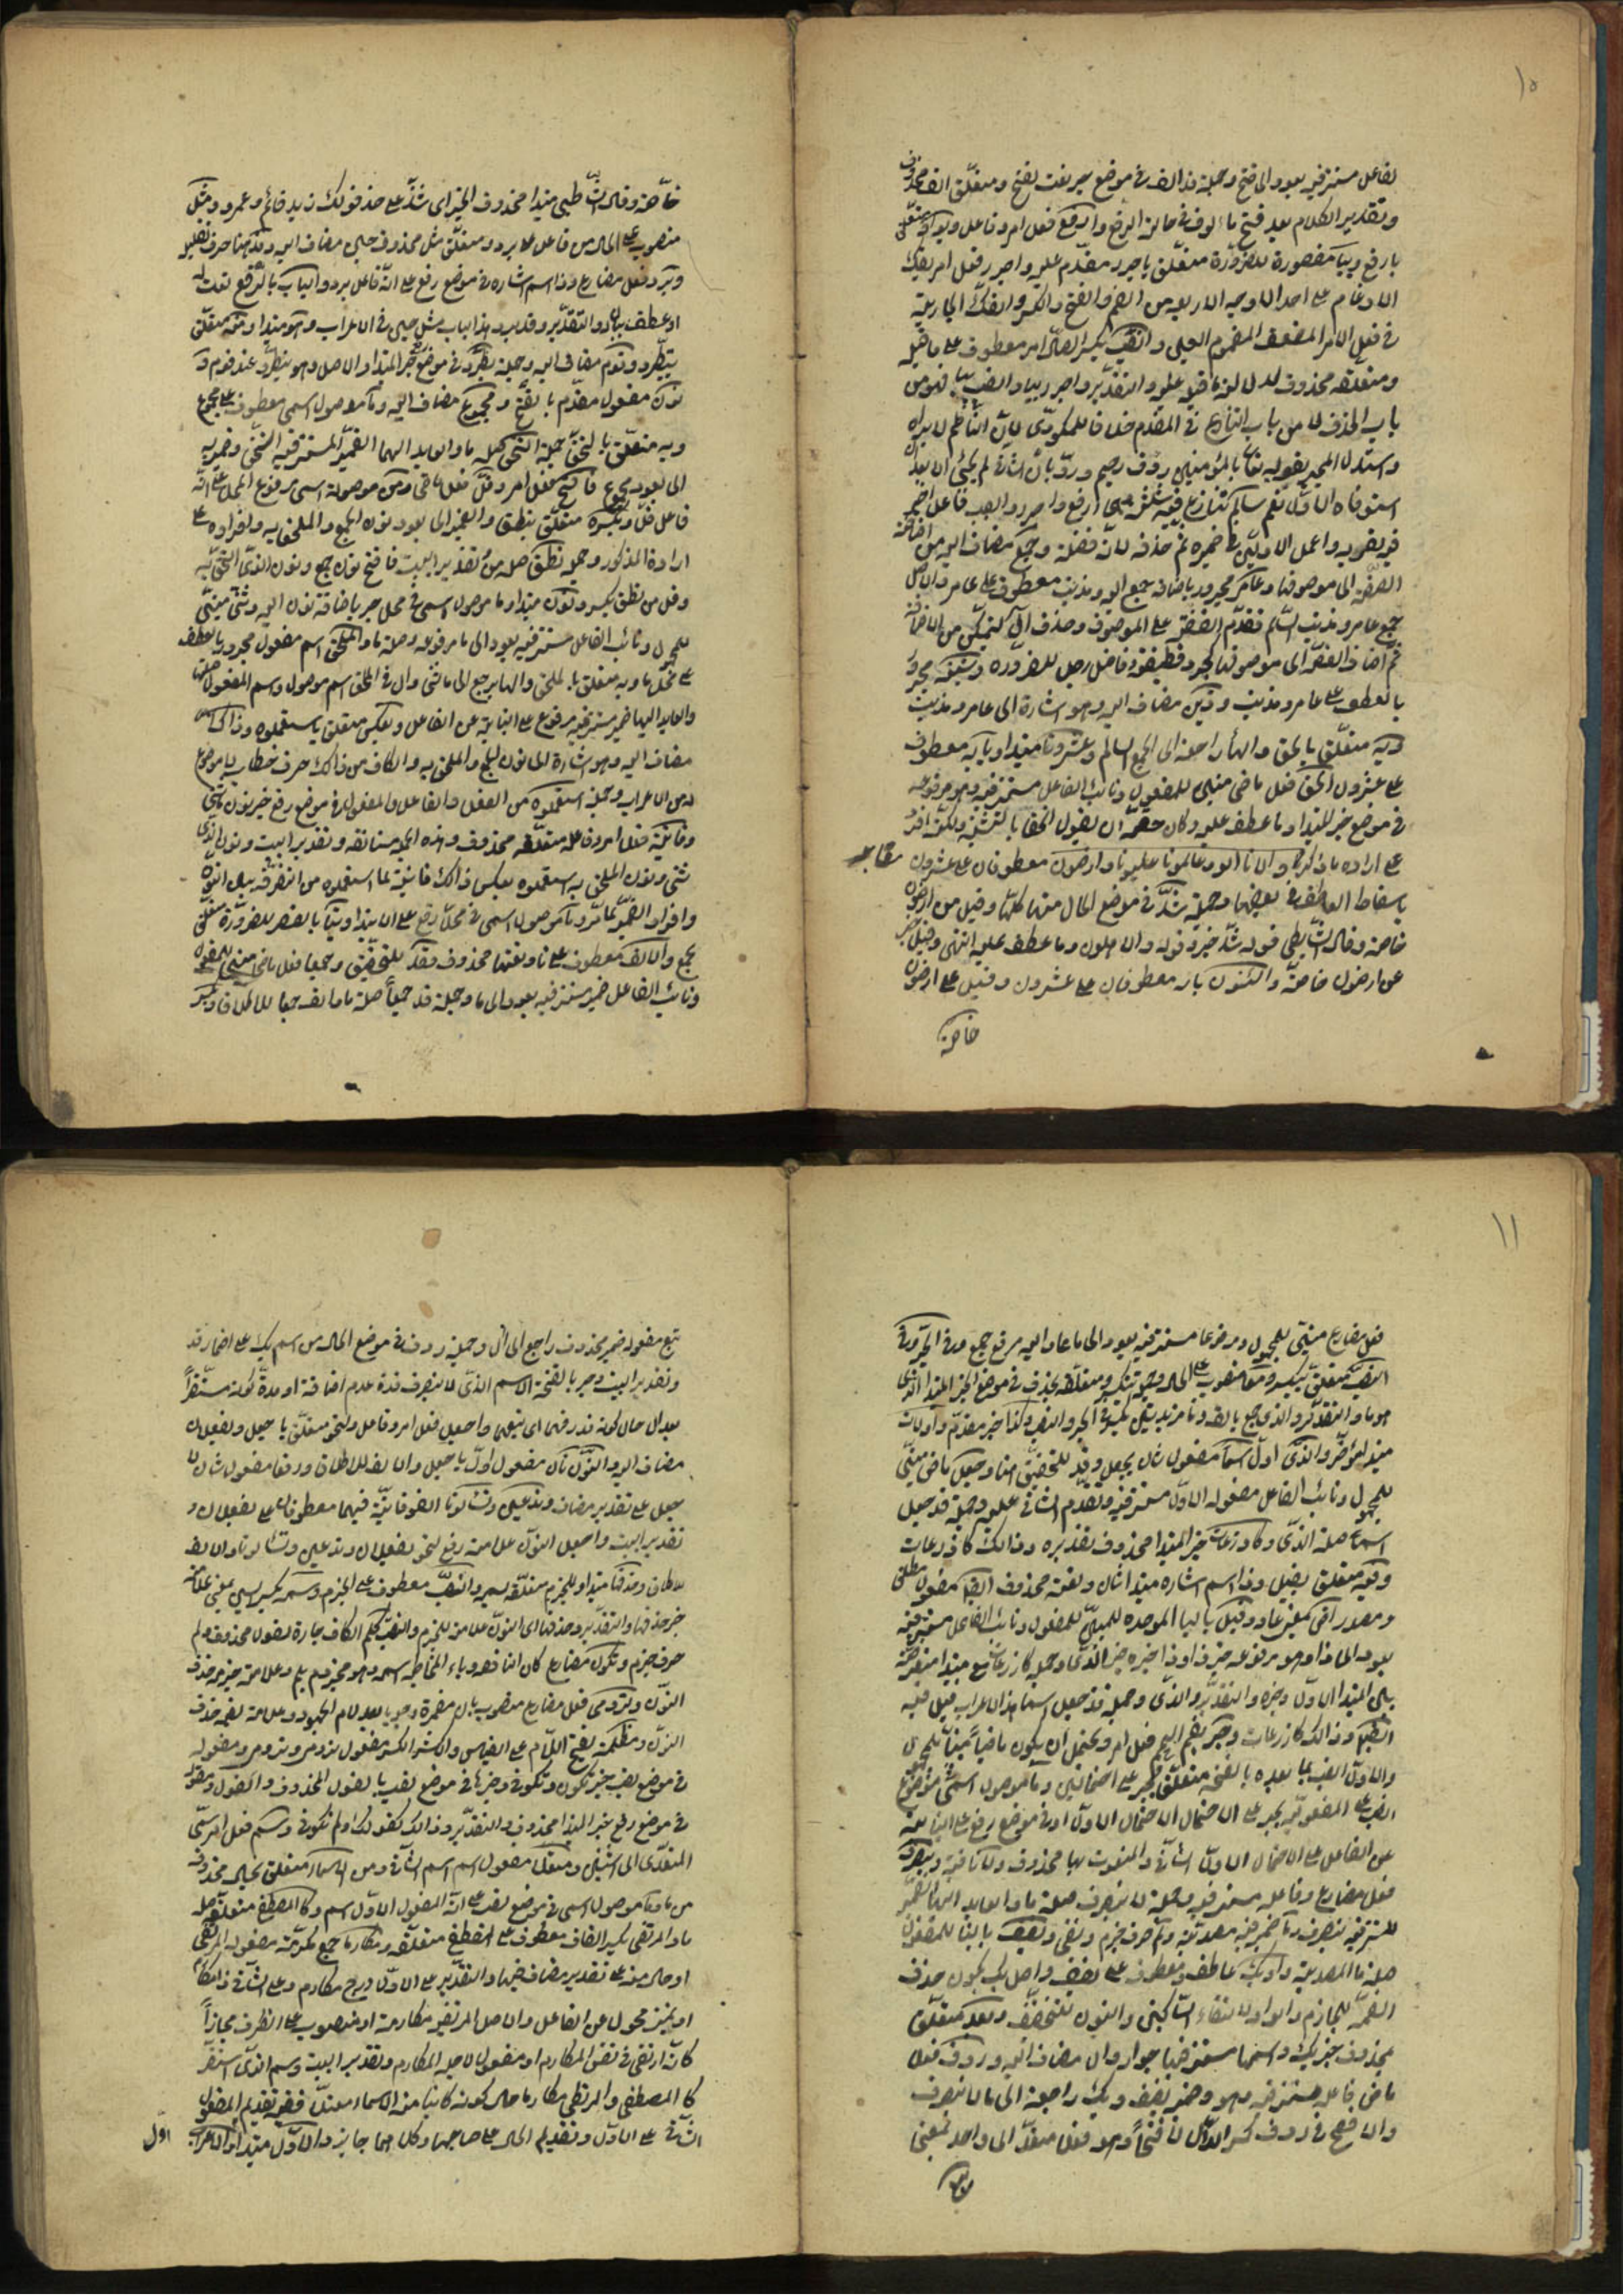 ١٠
لفاعل مستتر فيه يعود الى فتح وجملة ذا الف في موضع جر نعت لفتح ومتعلق الف محذوف
وتقدير الكلام بعد فتح مألوف في حالة الرفع وارفع فعل امر وفاعل وبواو متعلق
بارفع وبيا مقصورة للضرورة متعلق باجرر مقدم عليه واجرر فعل امر بفك
الادغام على احد الاوجه الاربعة من الضم والفتح والكسر والفك الجارية
في فعل الامر المضعف المضموم العين وانصب بكسر الصاد امر معطوف على ما قبله
ومتعلقه محذوف لدلالة ما قبله عليه والتقدير واجرر بيا وانصب بيا فهو من
باب الحذف لا من باب التنازع في المقدم خلافا للمكودي لان الناظم لا يراه
واستدل المجيز بقوله تعالى بالمؤمنين رؤف رحيم ورد بان الثاني لم يجئ الا بعد ان
استوفاه الاول نعم سالم تنازع فيه ثلثة وهي ارفع واجرر وانصب فاعمل الاخير
فيه لقربه واعمل الاولين في ضميره ثم حذفه لانه فضلة وجمع مضاف اليه من اضافة
الصفة الى موصوفها وعامر مجرور باضافة جمع اليه ومذنب معطوف على عامر والاصل
جمع عامر ومذنب السالم فقدم الصفة على الموصوف وحذف ال ليتمكن من الاضافة
ثم اضاف الصفة الى موصوفها كجرد قطيفة وفاضل رجل للضرورة وشبه مجرور
بالعطف على عامر ومذنب وذين مضاف اليه وهو اشارة الى عامر ومذنب
وبه متعلق بالحق والهاء راجعة الى الجمع السالم وعشرونا مبتدا وبابه معطوف
على عشرون الحق فعل ماض مبني للمفعول ونائب الفاعل مستتر فيه وهو مرفوعه
في موضع خبر المبتدا وما عطف عليه وكان حقه ان يقول الحقا بالتثنية ولكنه افرد
على ارادة ما ذكر والاهلونا اولو وعالمونا عليونا وارضون معطوفان على عشرون
باسقاط العاطف في بعضها وجملة شذ في موضع الحال منها كلها وقيل من ارضون
خاصة وقال الشاطبي قوله شذ خبر قوله والاهلون وما عطف عليه انتهى وقيل خبر
عن ارضون خاصة والسنون بابه معطوفان على عشرون وقيل على ارضون
خاصة
خاصة وقال الشاطبي مبتدا محذوف الخبر اى شذ على حذف قولك زيد قائم وعمرو ومثل
منصوب على الحال من فاعل يرد ومتعلق مثل محذوف حين مضاف اليه وقد هنا حرف تقليل
ويرد فعل مضارع وذا اسم اشارة في موضع رفع على انه فاعل يرد والباب بالرفع نعت له
او عطف بيان والتقدير وقد يرد هذا الباب مثل حين في الاعراب وهو مبتدا وعند متعلق
بيطرد وقوم مضاف اليه وجملة يطرد في موضع خبر المبتدا والاصل وهو يطرد عند قوم و
نون مفعول مقدم بافتح ومجموع مضاف اليه وما موصول اسمي معطوف على مجموع
وبه متعلق بالتحق جملة التحق صلة ما والعايد اليها الضمير المستتر فيه التحق وضمير به
الى يعود مجموع فافتح فعل امر وقل فعل ماض ومن موصولة اسمي مرفوع المحل على انه
فاعل قل وبكسره متعلق بنطق والضمير الى يعود نون الجمع والملحق به وافراده على
ارادة المذكور وجملة نطق صلة من وتقدير البيت فافتح نون جمع ونون الذي التحق به
وقل من نطق بكسره ونون مبتدا وما موصول اسمي في محل جر باضافة نون اليه وثني مبني
للمجهول ونائب الفاعل مستتر فيه يعود الى ما مرفوعه وصلة ما والملحق اسم مفعول مجرور بالعطف
على محل ما وبه متعلق بالملحق والها يرجع الى ما ثني وال في الملحق اسم موصول واسم المفعول صلتها
والعايد اليها ضمير مستتر فيه مرفوع على النيابة عن الفاعل وبعكس متعلق باستعملوه وذاك
مضاف اليه وهو اشارة الى نون الجمع والملحق به والكاف من ذاك حرف خطاب لا موضع
له من الاعراب وجملة استعملوه من الفعل والفاعل والمفعول في موضع رفع خبر نون ما ثني
وفانتبه فعل امر وفاعله متعلقه محذوف وهذه الجملة مستانفة وتقدير البيت ونون الذي
ثني ونون الملحق به استعملوه بعكس ذاك فانتبه لما استعملوه من التفرقة بين النونين
وافراد الضمير لما مر وما موصول اسمي في محل رفع على الابتدا وبتا بالقصر للضرورة متعلق
بجمع والالف معطوف على تا ونعتها محذوف وقد للتحقيق وجمعا فعل ماض مبني للمفعول
ونائب الفاعل ضمير مستتر فيه يعود الى ما وجملة قد جمعا صلة ما والف جمعا للاطلاق ويكسر
١١
فعل مضارع مبني للمجهول ومرفوعها مستتر فيه يعود الى ما عاد اليه مرفوع جمع وفي الجر وفي
النصب متعلق بيكسر ومعا منصوب على الحال وجملة يكسر ومتعلقه محذوف في موضع الخبر للمبتدا الذي
هو ما والتقدير والذي جمع بالف وتا مزيدتين يكسر في الجر والنصب وكذا خبر مقدم واولات
مبتدا مؤخر والذي اول اسما مفعول ثان بجعل وقد للتحقيق هنا وجعل ماض مبني
للمجهول ونائب الفاعل مفعوله الاول مستتر فيه وتقدم الثاني عليه وجملة قد جعل
اسما صلة الذي وكاذرعات خبر المبتدا محذوف تقديره وذلك كاذرعات
وفيه متعلق بقبل وذا اسم اشارة مبتدا ثان ونعته محذوف ايضا مفعول مطلق
ومصدر اض بمعنى عاد وقبل بالبا الموحدة للمبني للمفعول ونائب الفاعل مستتر فيه
يعود الى هذا وهو مرفوعه خبر ذا وذا خبره خبر الذي وجملة كاذرعات مع مبتدا معترضة
بين المبتدا الاول وخبره والتقدير والذي وجملة قد جعل اسما هذا الاعراب قبل فيه
ايضا وذلك كاذرعات وجر بضم الجيم فعل امر ويحتمل ان يكون ماضيا مبنيا للمجهول
والاول انسب بما بعده بالفتحة متعلق بجر على احتمالين وما موصول اسمي موضع
النصب على المفعولية بجر على الاحتمال الاول او في موضع رفع على النيابة
عن الفاعل على الاحتمال الثاني والمنعوت بها محذوف ولا نافية وينصرف
فعل مضارع وفاعله مستتر فيه وجملة لا ينصرف صلة ما والعايد اليها الضمير
المستتر فيه ينصرف وما ظرفية مصدرية ولم حرف جزم ونفي ويضف بالبنا للمفعول
صلة ما المصدرية واو يك عاطف ومعطوف على يضف واصل يك يكون حذف
الضمة للجازم والواو لالتقاء الساكنين والنون للتخفيف وبعد متعلق
بمحذوف خبر يك واسمها مستتر فيها جواز وال مضاف اليه وردف فعل
ماض فاعله مستتر فيه وهو وضمير يضف ويك راجعة الى ما لا ينصرف
والافصح في ردف كسر الدال لا فتحها وهو فعل متعد الى واحد بمعنى
تبع
تبع مفعوله ضمير محذوف راجع الى ال وجملة ردف في موضع الحال من اسم يك على اضمار قد
وتقدير البيت وجر بالفتحة الاسم الذي لا ينصرف مدة عدم اضافته او مدة كونه مستقرا
بعد ال حال كونه قد ردفها اى تبعها واجعل فعل امر وفاعل ولنحو متعلق باجعل ويفعلان
مضاف اليه والنون كان مفعول اول باجعل والالف للاطلاق ورفعا مفعول ثان لا
جعل على تقدير مضاف وتدعين وتسألونا الفوقانية فيهما معطوفان على يفعلان و
تقدير البيت واجعل النون علامة رفع لنحو يفعلان وتدعين وتسألونا والالف
للاطلاق وحذفها مبتدا وللجزم متعلق بسمه والنصب معطوف على الجزم وسمه بكسر السين بمعنى علامة
خبر حذفها والتقدير وحذفها اى النون علامة للجزم والنصب كلم الكاف جارة لقول محذوف ولم
حرف جزم وتكوني مضارع كان الناقصة وياء المخاطبة اسمه وهو مجزوم بلم وعلامة جزمه حذف
النون ولترومي فعل مضارع منصوب بان مضمرة وجوبا بعد لام الجحود وعلامة نصبه حذف
النون ومظلمة بفتح اللام على القياس والكسر اكثر مفعول ترومي وترومي ومفعوله
في موضع نصب خبر تكون وتكوني وخبرها في موضع نصب بالقول المحذوف والقول ومقوله
في موضع رفع خبر المبتدا محذوف والتقدير وذلك كقولك لم تكوني وسم فعل امر سمى
المتعدى الى اثنين ومعتلا مفعول اسم الثاني ومن الاسماء متعلق بحال محذوف
من ما وما موصول اسمي في موضع نصب على انه المفعول الاول لسم وكالمصطفى متعلقة صلة
ما والمرتقي بكسر القاف معطوف على المصطفى متعلقه ومكارما جمع مكرمة مفعول المرتقي
او حال منه على تقدير مضاف فيها والتقدير على الاول درج مكارم وعلى الثاني ذا مكارم
او تمييز محول عن الفاعل والاصل المرتقي مكارمه او منصوب على الظرف مجازا
كانه ارتقى في تلك المكارم او مفعول لاجله المكارم وتقدير البيت وسم الذي استقر
كالمصطفى والمرتقي مكارما حال كونه كائنا من الاسماء معتلا ففيه تقديم المفعول
الثاني على الاول وتقديم الحال على صاحبها وكل منهما جايز والاول مبتدا والاعراب
اول